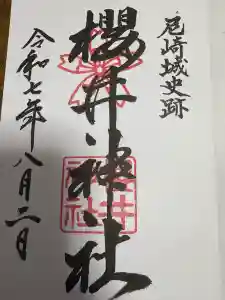 尼崎城史跡
櫻井神社
令和七年八月二日
櫻井神社